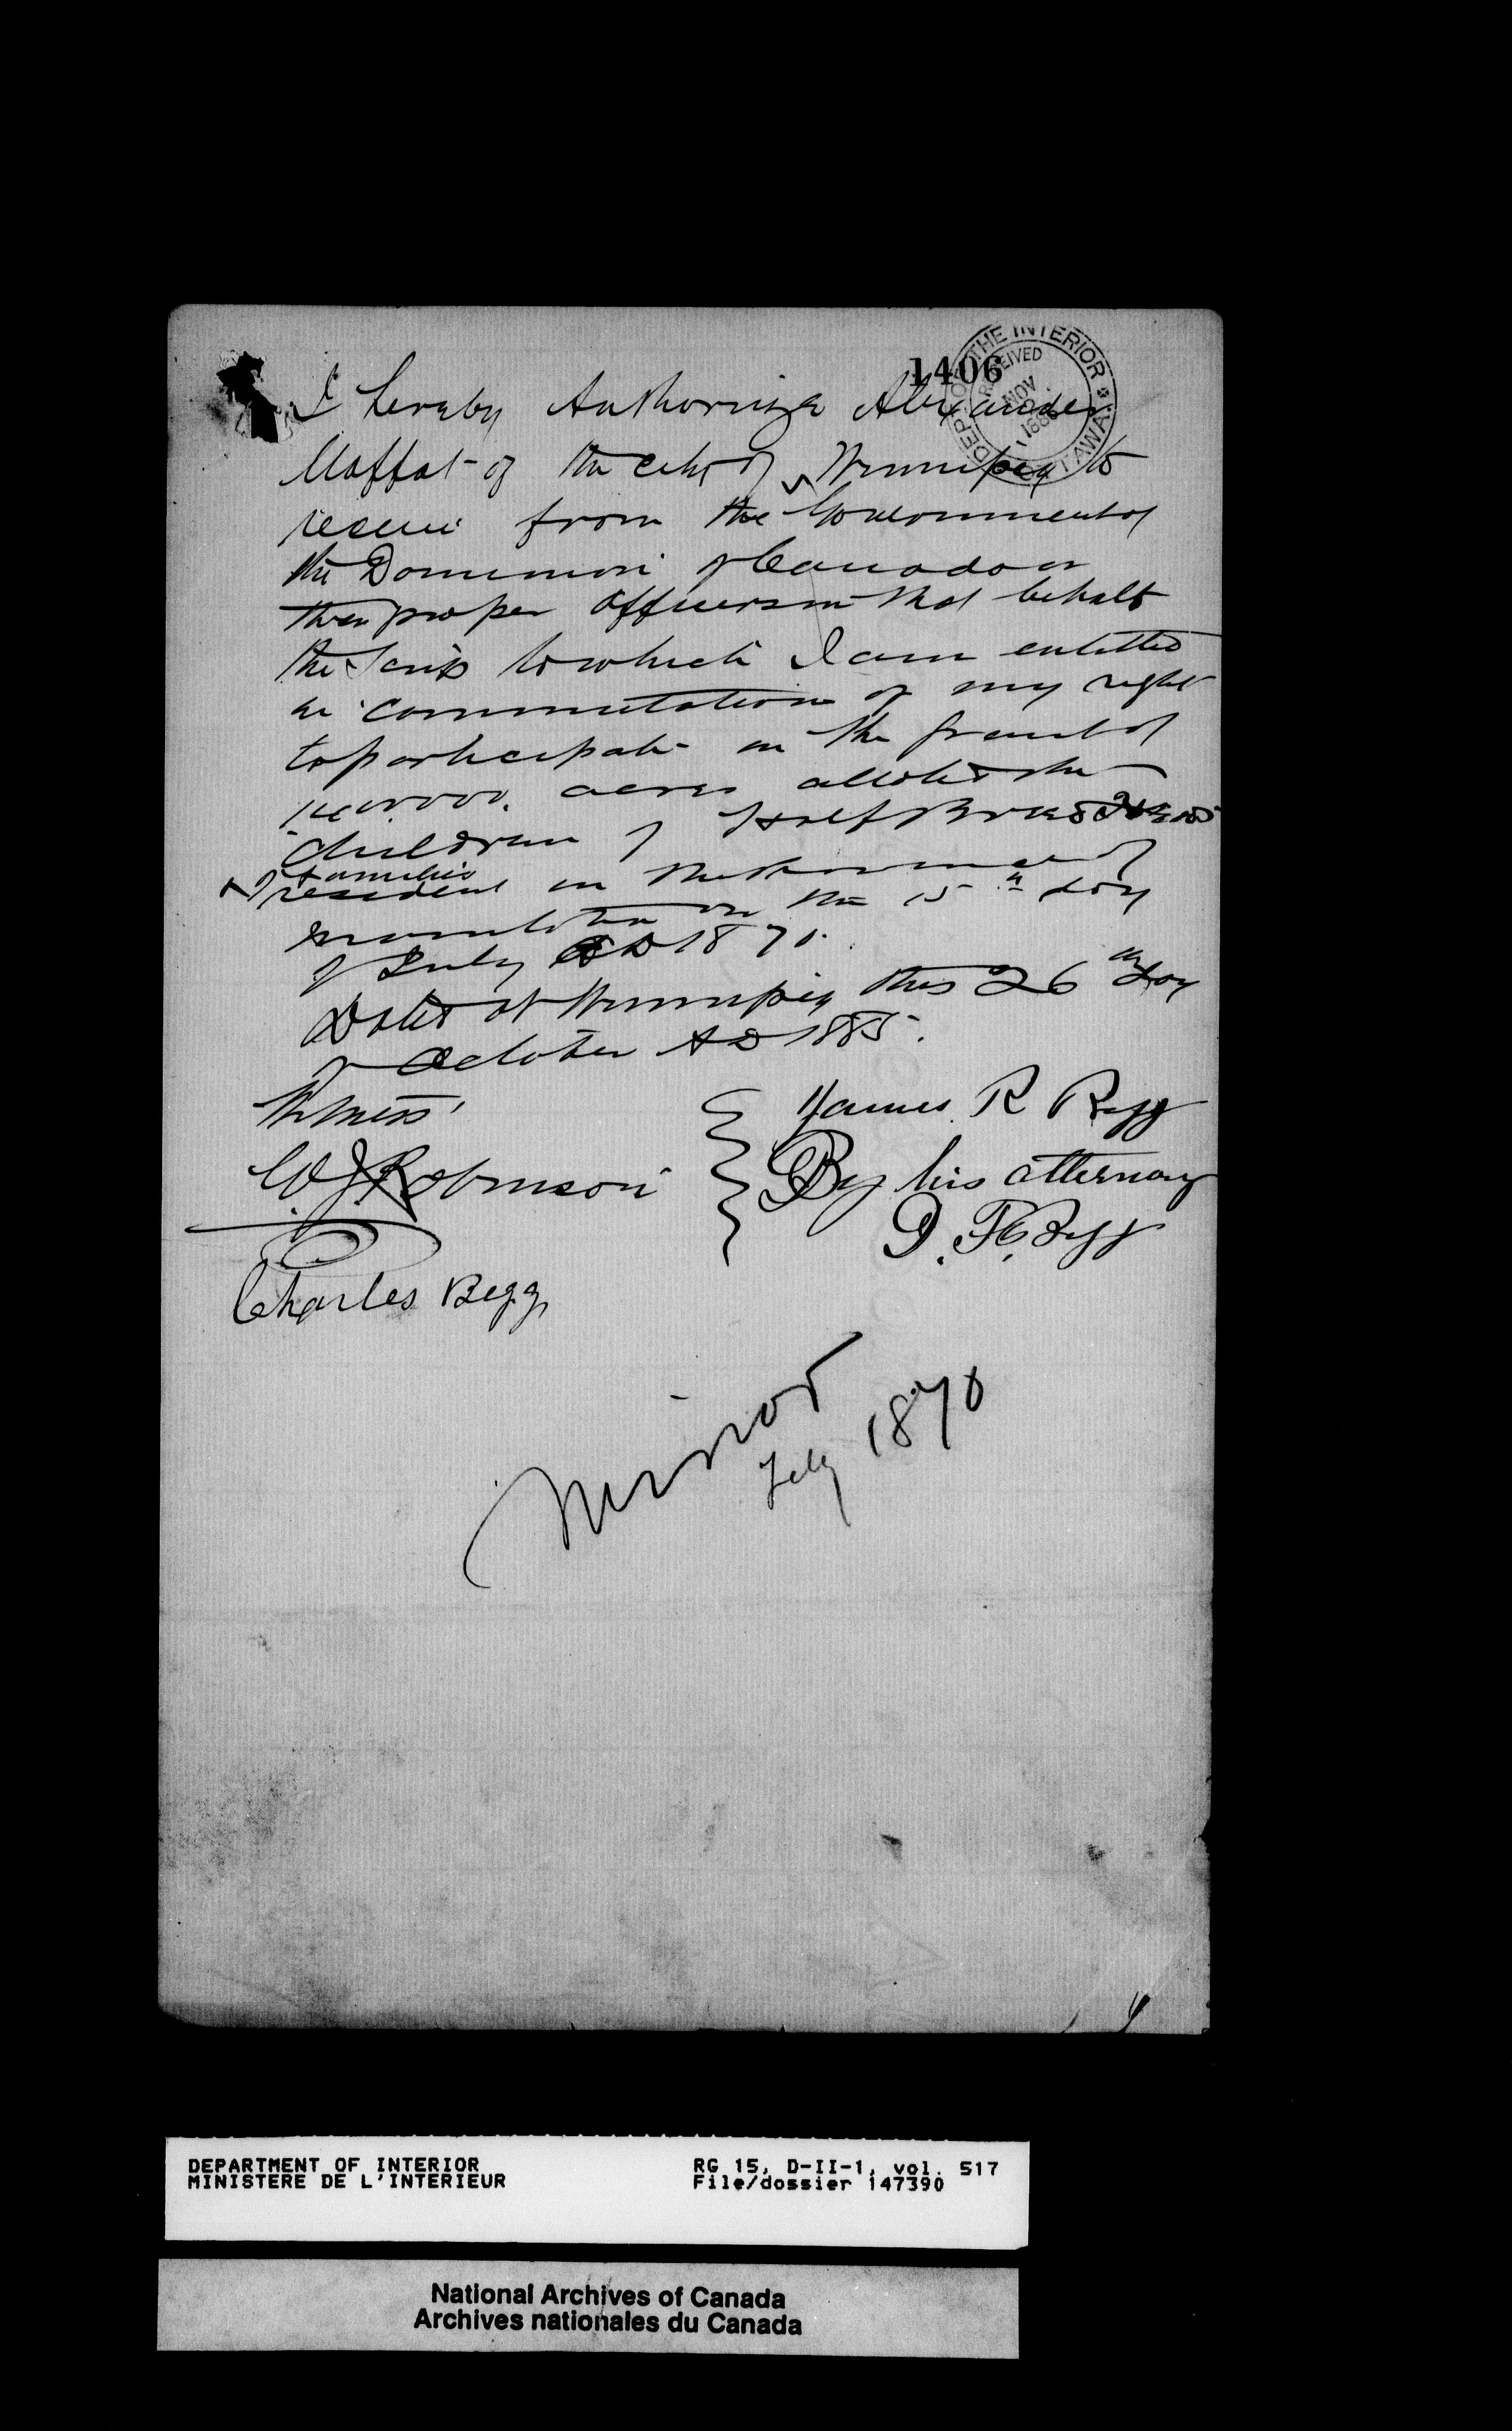 1406
DEPT. OF THE INTERIOR OTTAWA
RECEIVED
NOV
I hereby Authorize Alexander
Moffat of the city of Winnipeg to
receive from the Government of
the Dominion of Canada or
their proper officers in that behalf
the Scrip to which I am entitled
in commutation of my right
to participate in the grant of
acres allotted the
children of Half Breed Heads
of families
resident in the Province of
Manitoba on the 15th day
of July AD 1870.
Dated at Winnipeg this 26th day
of October AD 1885.
Witness
W J Robinson
Charles Begg
James R Begg
By his attorney
D. F. Begg
Minor
July 1870
DEPARTMENT OF INTERIOR
MINISTERE DE L'INTERIEUR
RG 15, D-II-1, vol. 517
File/dossier 147390
National Archives of Canada
Archives nationales du Canada